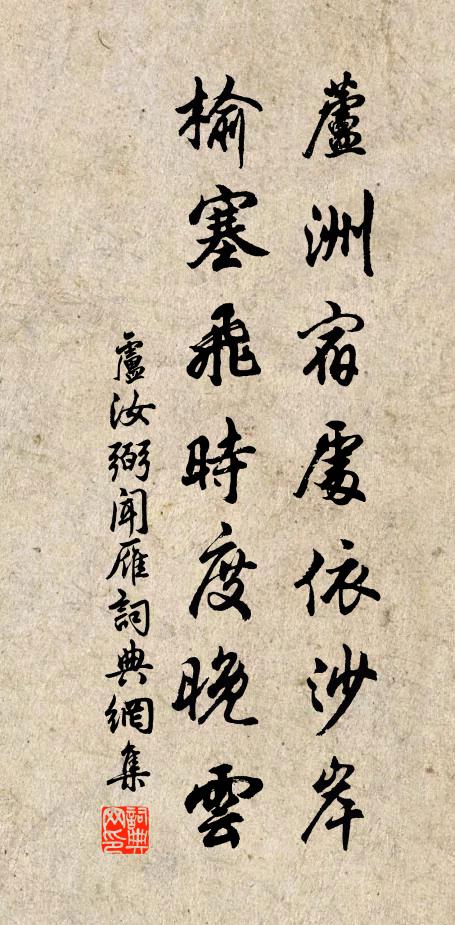 蘆洲宿處依沙岸
榆塞飛時度晚雲
盧汝弼聞雁詞典網集
詞典網印